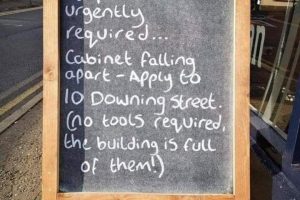 urgently
required...
Cabinet falling
apart - Apply to
10 Downing Street.
(no tools required,
the building is full
of them!)